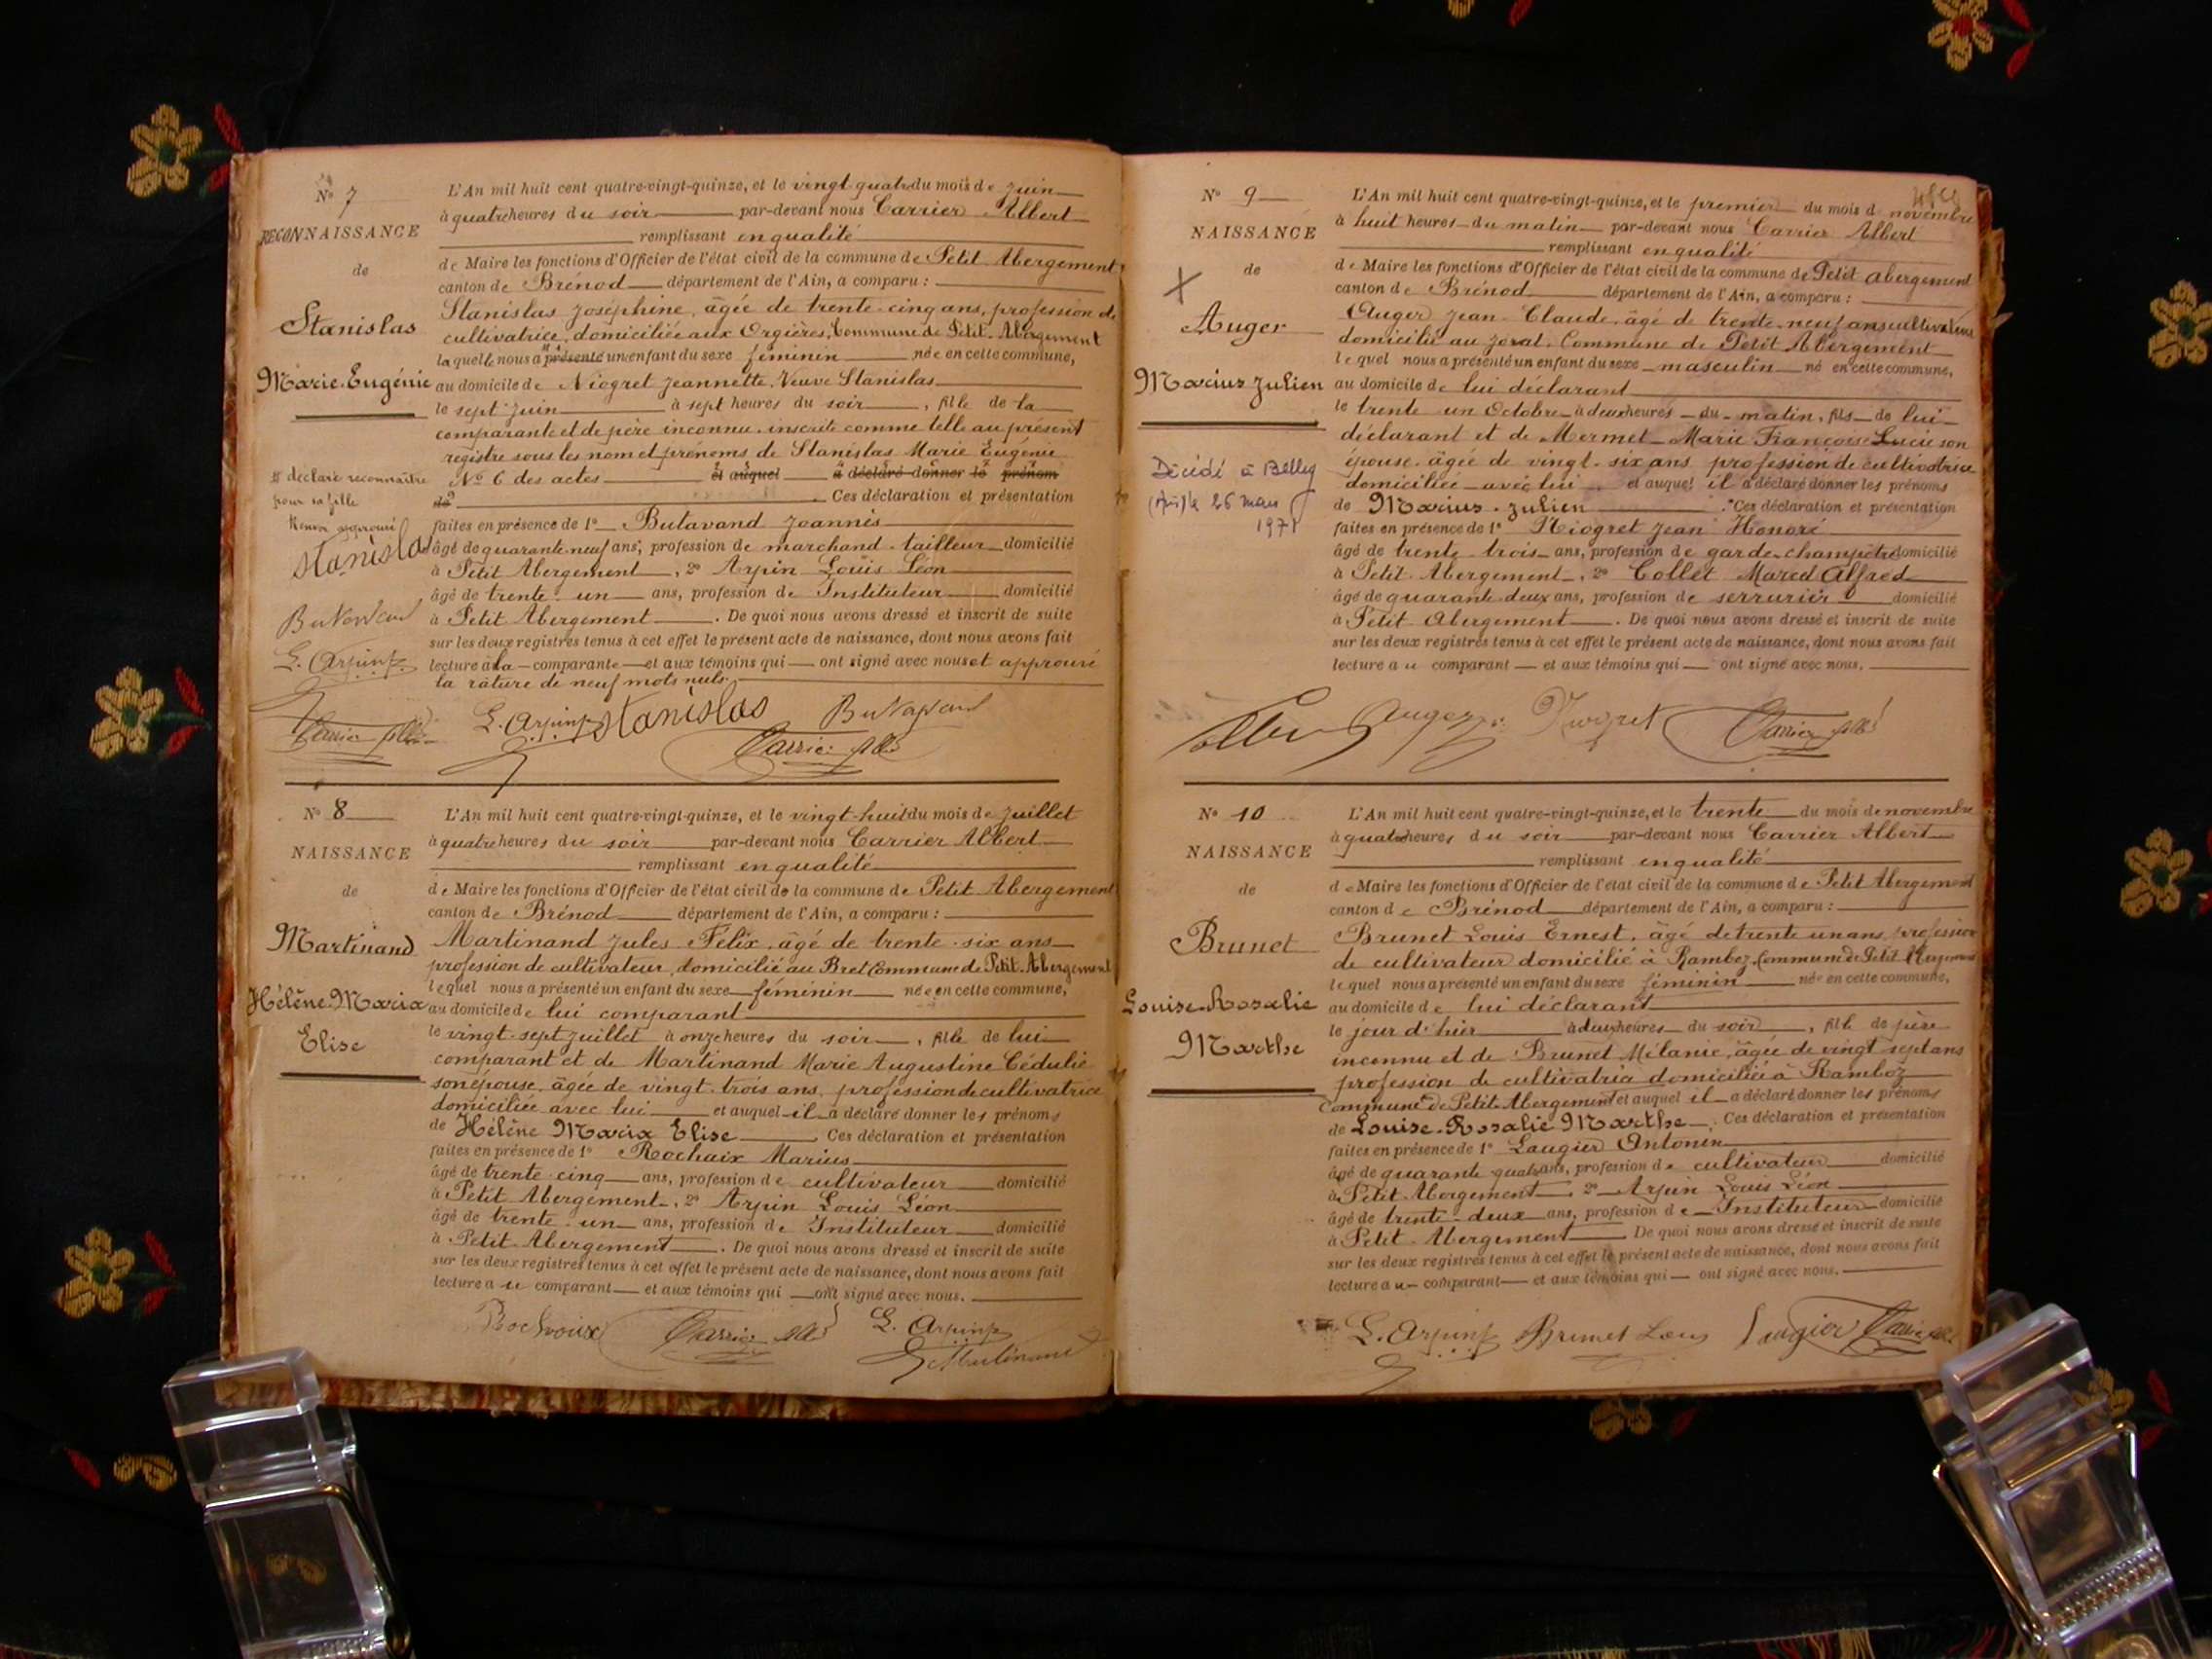 N° 7
RECONNAISSANCE
de
Stanislas
Marie-Eugénie
# déclaré reconnaître
pour sa fille
Renvoi approuvé
Stanislas
Butavand
L. Arpin
Carrier Alb
L'An mil huit cent quatre-vingt-quinze, et le vingt quatre du mois de Juin
à quatre heures du soir par-devant nous Carrier Albert
remplissant en qualité
de Maire les fonctions d'Officier de l'état civil de la commune de Petit Abergement
canton de Brénod département de l'Ain, a comparu :
Stanislas Joséphine, âgée de trente-cinq ans, profession de
cultivatrice, domiciliée aux Orgières, Commune de Petit-Abergement
laquelle nous a # présenté un enfant du sexe féminin née en cette commune,
au domicile de Niogret Jeannette, Veuve Stanislas
le sept Juin à sept heures du soir, fille de la
comparante et de père inconnu, inscrite comme telle au présent
registre sous les nom et prénoms de Stanislas Marie Eugénie
N° 6 des actes et auquel a déclaré donner le prénom
de Ces déclaration et présentation
faites en présence de 1° Butavand Joannès
âgé de quarante-neuf ans, profession de marchand-tailleur domicilié
à Petit Abergement, 2° Arpin Louis Léon
âgé de trente-un ans, profession de Instituteur domicilié
à Petit Abergement. De quoi nous avons dressé et inscrit de suite
sur les deux registres tenus à cet effet le présent acte de naissance, dont nous avons fait
lecture à la comparante et aux témoins qui ont signé avec nous et approuvé
la râture de neuf mots nuls.
L. Arpin Stanislas Butavand
Carrier Alb
N° 8
NAISSANCE
de
Martinand
Hélène-Maria
Elise
L'An mil huit cent quatre-vingt-quinze, et le vingt-huit du mois de Juillet
à quatre heures du soir par-devant nous Carrier Albert
remplissant en qualité
de Maire les fonctions d'Officier de l'état civil de la commune de Petit Abergement
canton de Brénod département de l'Ain, a comparu :
Martinand Jules Félix, âgé de trente-six ans
profession de cultivateur, domicilié au Bret Commune de Petit-Abergement
lequel nous a présenté un enfant du sexe féminin née en cette commune,
au domicile de lui comparant
le vingt-sept Juillet à onze heures du soir, fille de lui
comparant et de Martinand Marie Augustine Cédulie
son épouse, âgée de vingt-trois ans, profession de cultivatrice
domiciliée avec lui et auquel il a déclaré donner les prénoms
de Hélène Maria Elise. Ces déclaration et présentation
faites en présence de 1° Rochaix Marius
âgé de trente-cinq ans, profession de cultivateur domicilié
à Petit Abergement, 2° Arpin Louis Léon
âgé de trente-un ans, profession de Instituteur domicilié
à Petit-Abergement. De quoi nous avons dressé et inscrit de suite
sur les deux registres tenus à cet effet le présent acte de naissance, dont nous avons fait
lecture au comparant et aux témoins qui ont signé avec nous.
Rochaix Carrier Alb L. Arpin
Martinand
N° 9
NAISSANCE
de
Auger
Marius Julien
Décédé à Belley
(Ain) le 26 Mars
1971
L'An mil huit cent quatre-vingt-quinze, et le premier du mois de novembre
à huit heures du matin par-devant nous Carrier Albert
remplissant en qualité
de Maire les fonctions d'Officier de l'état civil de la commune de Petit Abergement
canton de Brénod département de l'Ain, a comparu :
Auger Jean-Claude, âgé de trente-neuf ans cultivateur
domicilié au Jorat, Commune de Petit Abergement
lequel nous a présenté un enfant du sexe masculin né en cette commune,
au domicile de lui déclarant
le trente un Octobre à deux heures du matin, fils de lui
déclarant et de Mermet Marie Françoise Lucie son
épouse, âgée de vingt-six ans profession de cultivatrice
domiciliée avec lui et auquel il a déclaré donner les prénoms
de Marius-Julien. Ces déclaration et présentation
faites en présence de 1° Niogret Jean Honoré
âgé de trente-trois ans, profession de garde-champêtre domicilié
à Petit-Abergement, 2° Collet Marcel Alfred
âgé de quarante-deux ans, profession de serrurier domicilié
à Petit Abergement. De quoi nous avons dressé et inscrit de suite
sur les deux registres tenus à cet effet le présent acte de naissance, dont nous avons fait
lecture au comparant et aux témoins qui ont signé avec nous.
Auger Niogret Carrier Alb
N° 10
NAISSANCE
de
Brunet
Louise-Rosalie
Marthe
L'An mil huit cent quatre-vingt-quinze, et le trente du mois de novembre
à quatre heures du soir par-devant nous Carrier Albert
remplissant en qualité
de Maire les fonctions d'Officier de l'état civil de la commune de Petit Abergement
canton de Brénod département de l'Ain, a comparu :
Brunet Louis Ernest, âgé de trente un ans, profession
de cultivateur domicilié à Ramboz, Commune de Petit Abergement
lequel nous a présenté un enfant du sexe féminin née en cette commune,
au domicile de lui déclarant
le jour d'hier à deux heures du soir, fille de père
inconnu et de Brunet Mélanie, âgée de vingt sept ans
profession de cultivatrice domiciliée à Ramboz
Commune de Petit-Abergement et auquel il a déclaré donner les prénoms
de Louise-Rosalie Marthe. Ces déclaration et présentation
faites en présence de 1° Laugier Antonin
âgé de quarante-quatre ans, profession de cultivateur domicilié
à Petit Abergement, 2° Arpin Louis Léon
âgé de trente-deux ans, profession de Instituteur domicilié
à Petit-Abergement De quoi nous avons dressé et inscrit de suite
sur les deux registres tenus à cet effet le présent acte de naissance, dont nous avons fait
lecture au comparant et aux témoins qui ont signé avec nous.
L. Arpin Brunet Louis Laugier Carrier Alb